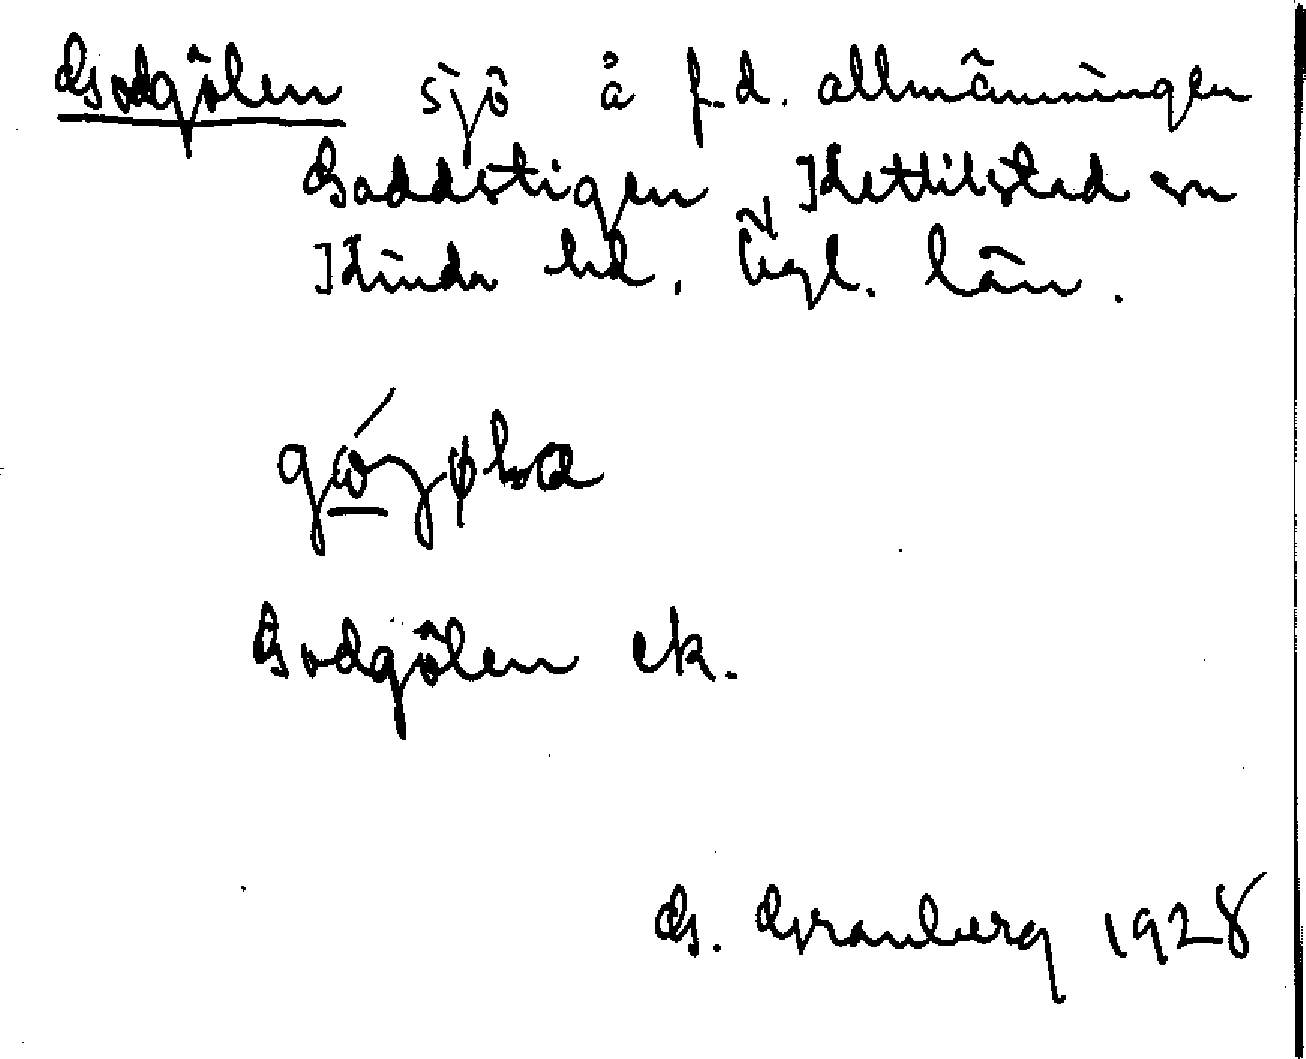 Godgölen sjö å f.d. allmänningen
Gaddstigen Kettilstad sn
Kinda hd. Ögl. län.
Godgölen ek.
G. Granberg 1928